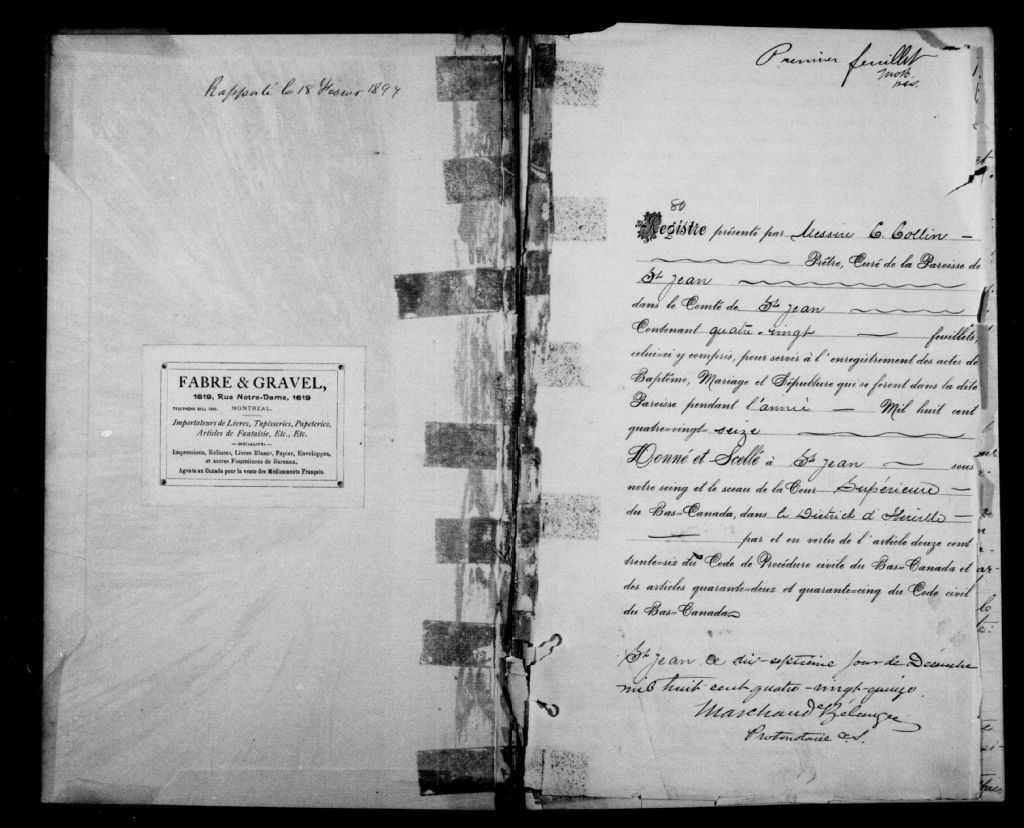 Rapporté le 18 1897
FABRE & GRAVEL,
1619, Rue Notre-Dame, 1619
TELEPHONE BELL MONTREAL.
Importateurs de Livres, Tapisseries, Papeteries,
Articles de Fantaisie, Etc., Etc.
— SPÉCIALITÉS —
Impressions, Reliures, Livres Blancs, Papier, Enveloppes,
et autres Fournitures de Bureaux.
Agents au Canada pour la vente des Médicaments Français.
Premier feuillet
80
Registre présenté par Messire C. Collin —
Prêtre, Curé de la Paroisse de
St Jean
dans le Comté de St Jean
Contenant quatre-vingt — feuillets,
celui-ci y compris, pour servir à l'enregistrement des actes de
Baptême, Mariage et Sépulture qui se feront dans la dite
Paroisse pendant l'année — Mil huit cent
quatre=vingt= seize
Donné et Scellé à St Jean — sous
notre seing et le sceau de la Cour Supérieure —
du Bas=Canada, dans le District d'Iberville —
— par et en vertu de l'article douze cent
trente=six du Code de Procédure civile du Bas=Canada et
des articles quarante=deux et quarante=cinq du Code civil
du Bas=Canada
St Jean ce dix-septième jour de Décembre
mil huit cent quatre-vingt-quinze
Marchand & Bélanger
Protonotaire C.S.